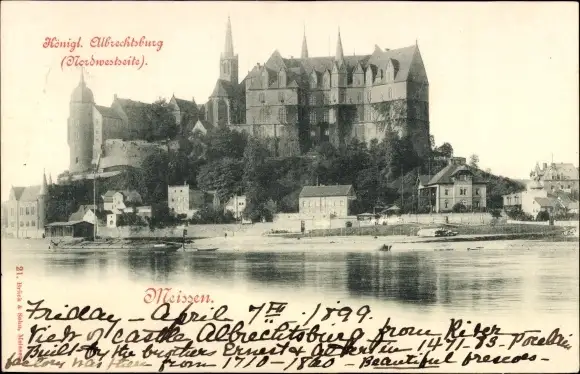 Königl. Albrechtsburg
(Nordwestseite).
Meissen.
21. Brück & Sohn, Meissen
Friday - April 7th. 1899.
View of castle Albrechtsburg from River
Built by the brothers Ernest & Albert in 1471-83. Porcelain
factory was then from 1710-1860 - Beautiful frescoes -